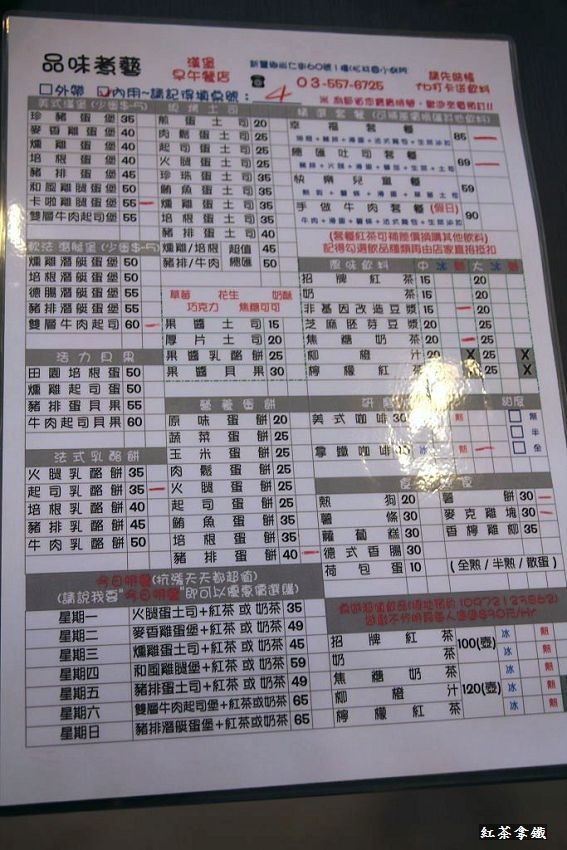 品味煮藝
漢堡
早午餐店
☎ 03-557-6725
請先結帳
fb打卡送飲料
□外帶 ☑內用~請記得填桌號: 4
美式漢堡(少蛋$-5)
珍豬蛋堡 35
麥香雞蛋堡 40
燻雞蛋堡 40
培根蛋堡 40
豬排蛋堡 45
和風雞腿蛋堡 55
卡啦雞腿蛋堡 55
雙層牛肉起司堡 55
軟法潛艇堡(少蛋$-5)
燻雞潛艇蛋堡 50
培根潛艇蛋堡 50
德腸潛艇蛋堡 55
豬排潛艇蛋堡 55
雙層牛肉起司 60
活力貝果
田園培根蛋 50
燻雞起司蛋 50
豬排蛋貝果 55
牛肉起司貝果 60
法式乳酪餅
火腿乳酪餅 35
起司乳酪餅 35
培根乳酪餅 40
豬排乳酪餅 45
牛肉乳酪餅 50
現烤土司
煎蛋土司 20
肉鬆蛋土司 25
起司蛋土司 25
火腿蛋土司 25
珍珠蛋土司 35
鮪魚蛋土司 35
燻雞蛋土司 35
培根蛋土司 35
豬排蛋土司 40
燻雞/培根 超值 45
豬排/牛肉 總匯 50
草莓 花生 奶酥
巧克力 焦糖可可
果醬土司 15
厚片土司 20
果醬乳酪餅 25
果醬貝果 30
營養蛋餅
原味蛋餅 20
蔬菜蛋餅 25
玉米蛋餅 25
肉鬆蛋餅 25
火腿蛋餅 25
起司蛋餅 25
鮪魚蛋餅 35
培根蛋餅 35
豬排蛋餅 40
幸福套餐 85
總匯吐司套餐 69
快樂兒童餐 59
手做牛肉套餐 (假日) 90
(套餐紅茶可補差價換購其他飲料)
記得勾選飲品種類再由店家直接扣
風味飲料 中 冰 熱 大 冰 熱
招牌紅茶 15 20
奶茶 15 20
非基因改造豆漿 15 20
芝麻胚芽豆漿 20 25
焦糖奶茶 20 25
柳橙汁 20 X 25 X
檸檬紅茶 20 X 25 X
美式咖啡 30 熱
拿鐵咖啡 冰 熱
糖度
□ 無
□ 半
□ 全
熱狗 20
薯條 30
蘿蔔糕 30
德式香腸 30
荷包蛋 10
薯餅 30
麥克雞塊 30
香檸雞柳 35
(全熟/半熟/散蛋)
今日明餐(抗漲天天都超值)
(請說我要"今日明餐"即可以優惠價選購)
星期一 火腿蛋土司+紅茶 或 奶茶 35
星期二 麥香雞蛋堡+紅茶 或 奶茶 49
星期三 燻雞蛋土司+紅茶 或 奶茶 45
星期四 和風雞腿堡+紅茶 或 奶茶 59
星期五 豬排蛋土司+紅茶 或 奶茶 49
星期六 雙層牛肉起司堡+紅茶 或 奶茶 65
星期日 豬排潛艇堡+紅茶 或 奶茶 65
招牌紅茶 100(壺) 冰 熱
奶茶 冰 熱
焦糖奶茶 120(壺) 冰 熱
柳橙汁 冰
檸檬紅茶 冰
紅茶拿鐵